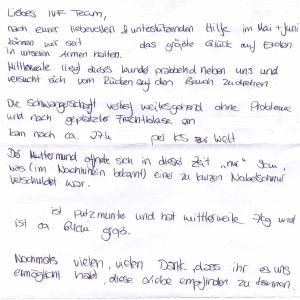 Liebes IVF Team,
nach eurer liebevollen & unterstützenden Hilfe im Mai + Juni
können wir seit das größte Glück auf Erden
in unseren Armen halten.
Mittlerweile liegt dieses Wunder brabbelnd neben uns und
versucht sich vom Rücken auf den Bauch zu drehen.
Die Schwangerschaft verlief weitesgehend ohne Probleme
und nach geplatzter Fruchtblase am
kam nach ca. 27h per KS zur Welt
Der Muttermund öffnete sich in dieser Zeit "nur" 9cm,
was (im Nachhinein bekannt) einer zu kurzen Nabelschnur
verschuldet war.
ist putzmunter und hat mittlerweile kg und
ist ca. 61cm groß.
Nochmals vielen, vielen Dank, dass ihr es uns
ermöglicht habt, diese Liebe empfinden zu können.